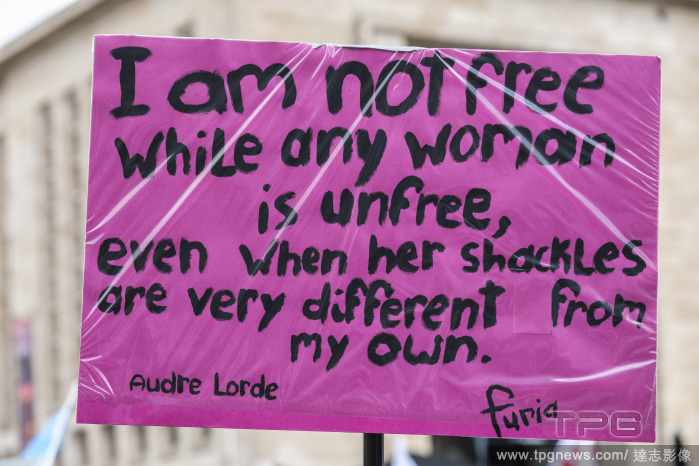 I am not free
while any woman
is unfree,
even when her shackles
are very different from
my own.
Audre Lorde
furia
TPG
www.tpgnews.com/ 達志影像